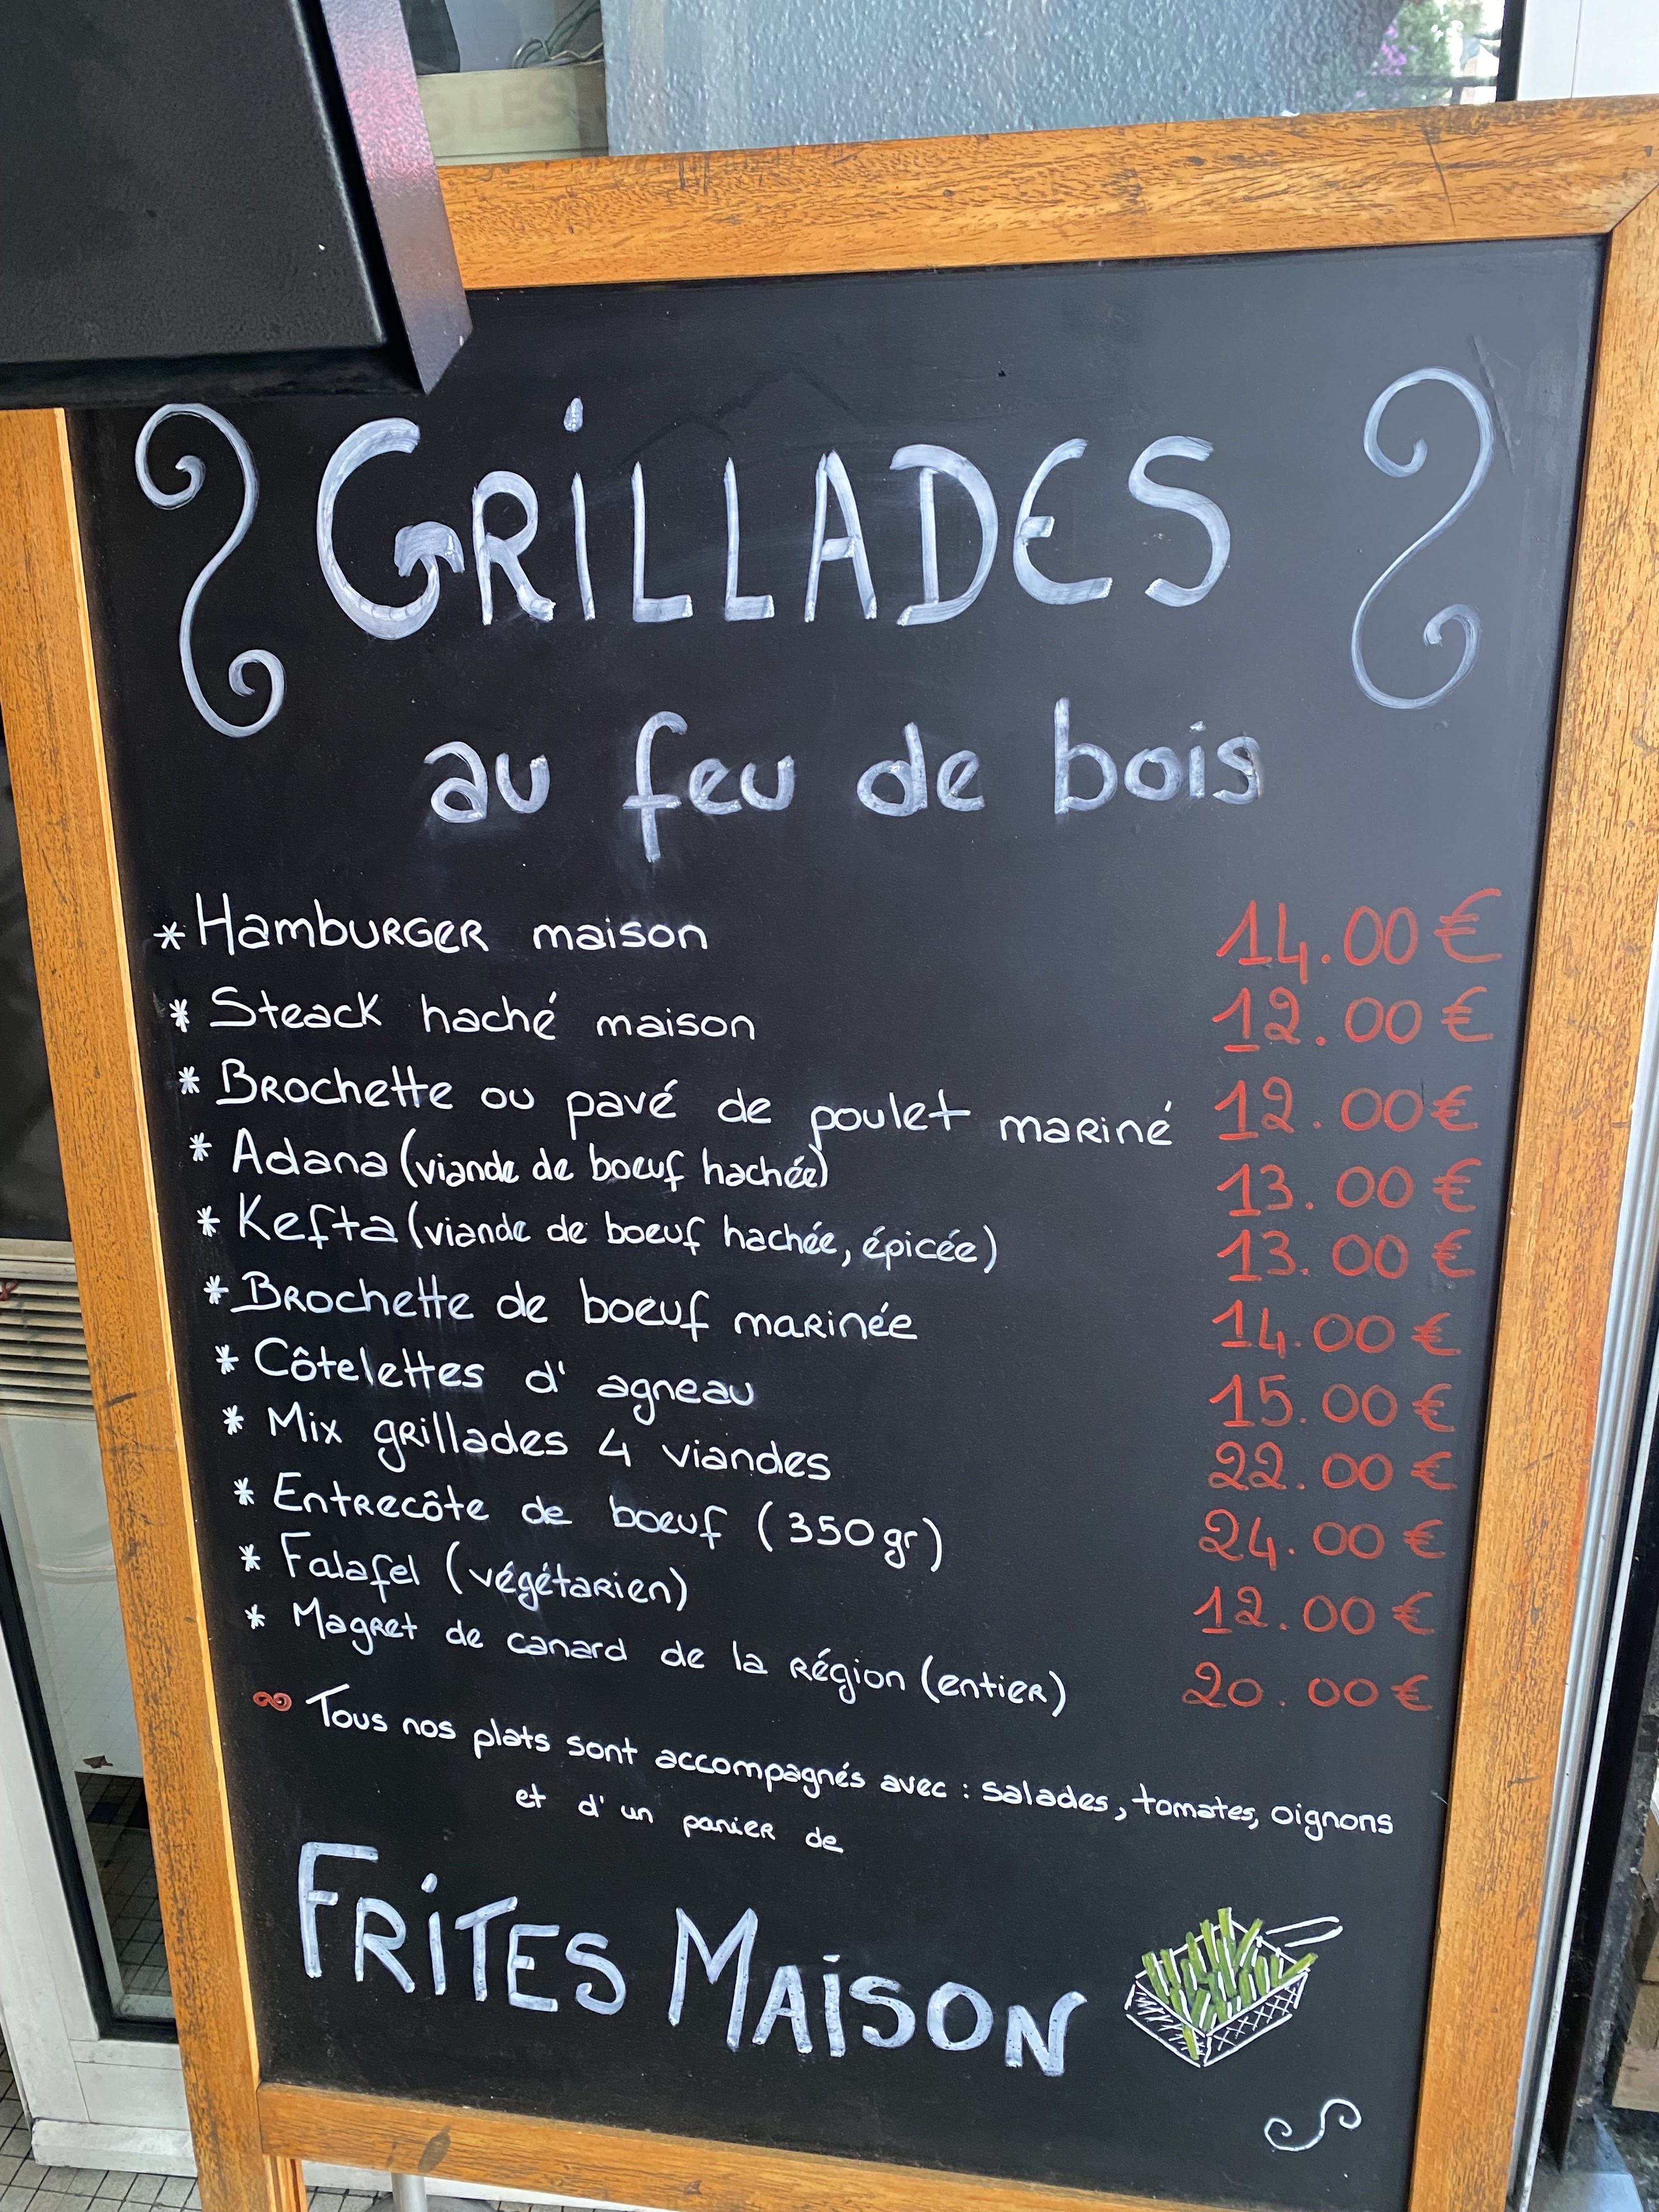 GRiLLADES
au feu de bois
* HambURGER maison 14.00 €
* Steack haché maison 12.00 €
* Brochette ou pavé de poulet mariné 12.00 €
* Adana (viande de boeuf hachée) 13.00 €
* Kefta (viande de boeuf hachée, épicée) 13.00 €
* Brochette de boeuf marinée 14.00 €
* Côtelettes d' agneau 15.00 €
* Mix grillades 4 viandes 22.00 €
* Entrecôte de boeuf (350gr) 24.00 €
* Falafel (végétarien) 12.00 €
* Magret de canard de la région (entier) 20.00 €
∞ Tous nos plats sont accompagnés avec : salades, tomates, oignons
et d' un panier de
FRiTES MAiSON